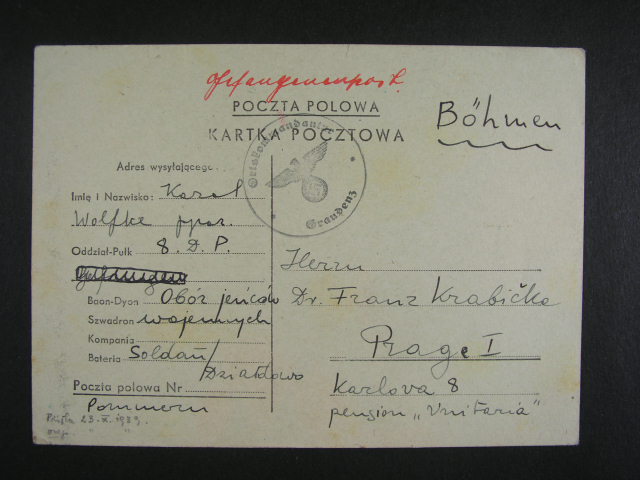 Gefangenenpost.
POCZTA POLOWA
KARTKA POCZTOWA
Böhmen
Ortskommandantur
Graudenz
Adres wysyłającego:
Imię i Nazwisko: Karol
Wolfke ppor.
Oddział-Pułk 8. D. P.
Baon-Dyon Obóz jeńców
Szwadron wojennych
Kompania
Bateria Soldau/
Działdowo
Poczta polowa Nr
Pommern
23. X. 1939.
Herrn
Dr. Franz Krabička
Prag I
Karlova 8
pension „Unitaria"